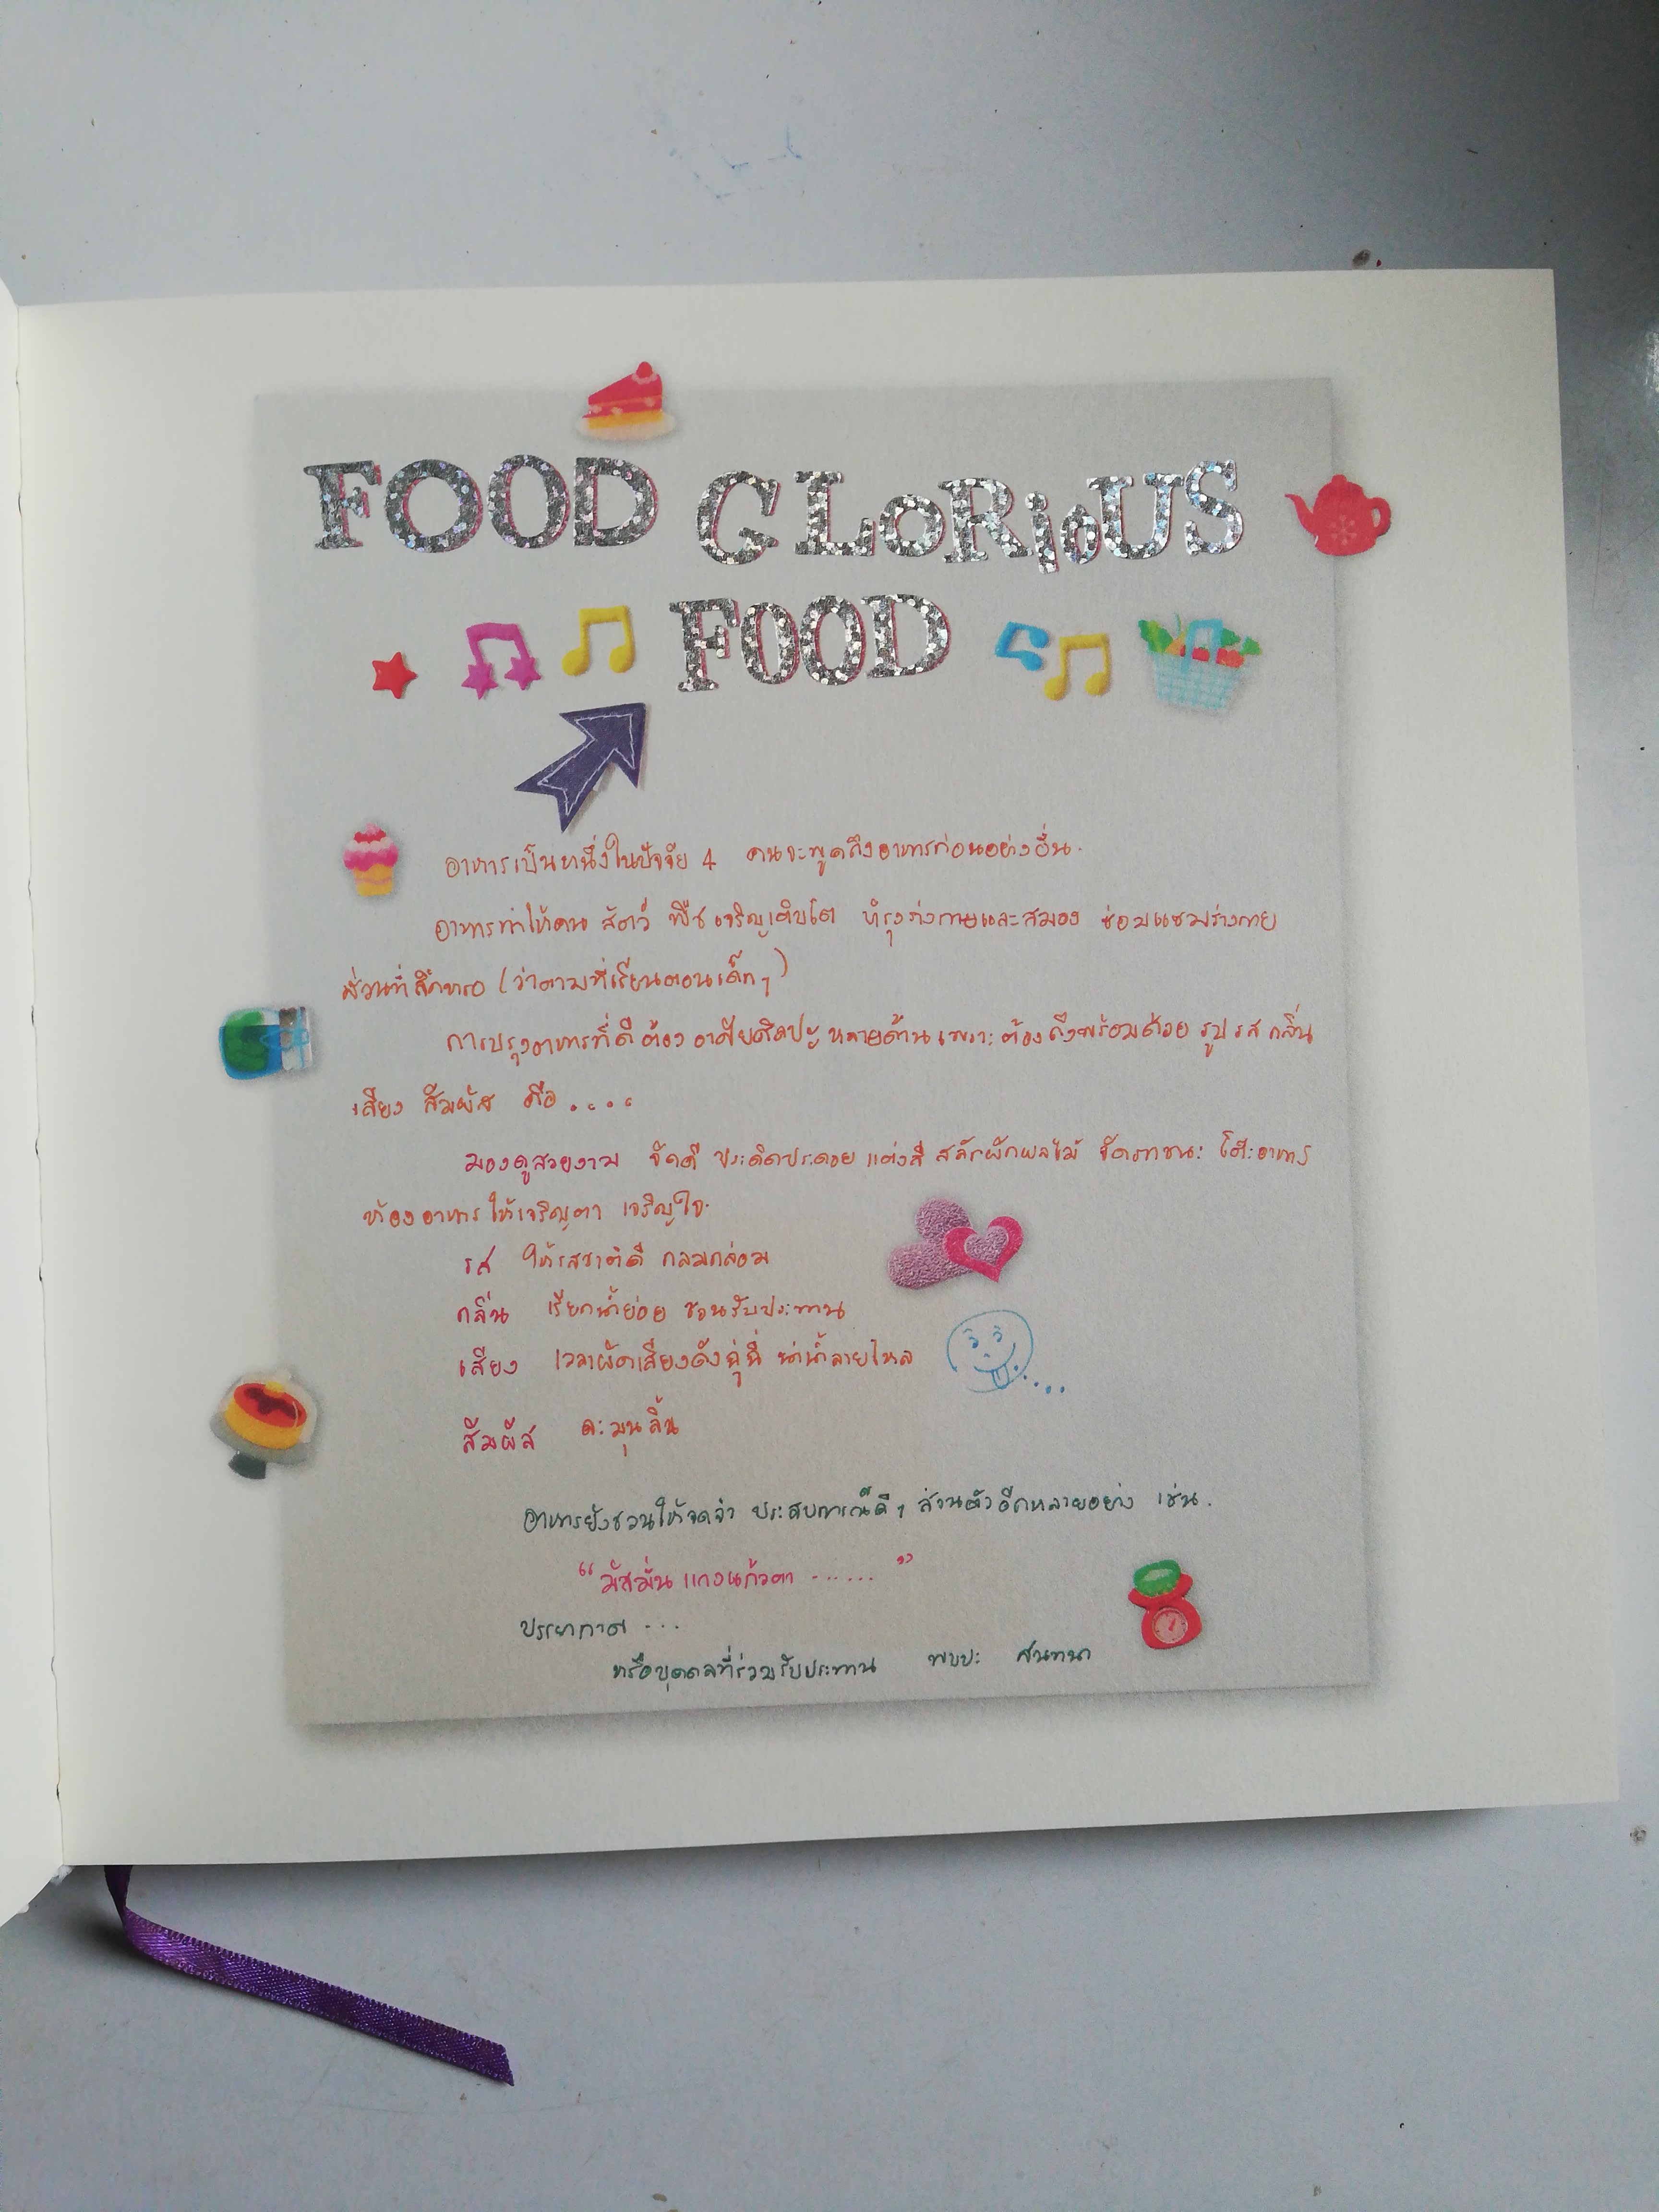 FOOD GLORiOUS
FOOD
อาหารเป็นหนึ่งในปัจจัย 4 คนจะพูดถึงอาหารก่อนอย่างอื่น.
อาหารทำให้คน สัตว์ พืช เจริญเติบโต บำรุงร่างกายและสมอง ซ่อมแซมร่างกาย
ส่วนที่สึกหรอ (ว่าตามที่เรียนตอนเด็กๆ)
การปรุงอาหารที่ดี ต้อง อาศัยศิลปะ หลายด้าน เพราะ ต้องถึงพร้อมด้วย รูป รส กลิ่น
เสียง สัมผัส คือ ....
มองดูสวยงาม จัดดี ประดิดประดอย แต่งสี สลักผักผลไม้ จัดภาชนะ โต๊ะอาหาร
ห้องอาหาร ให้เจริญตา เจริญใจ.
รส ให้รสชาติดี กลมกล่อม
กลิ่น เรียกน้ำย่อย ชวนรับประทาน
เสียง เวลาผัดเสียงดังฉู่ฉี่ น่าน้ำลายไหล
สัมผัส ละมุนลิ้น
อาหารยังชวนให้จดจำ ประสบการณ์ดีๆ ส่วนตัวอีกหลายอย่าง เช่น.
“มัสมั่น แกงแก้วตา ......”
บรรยากาศ ...
หรือบุคคลที่ร่วมรับประทาน พบปะ สนทนา